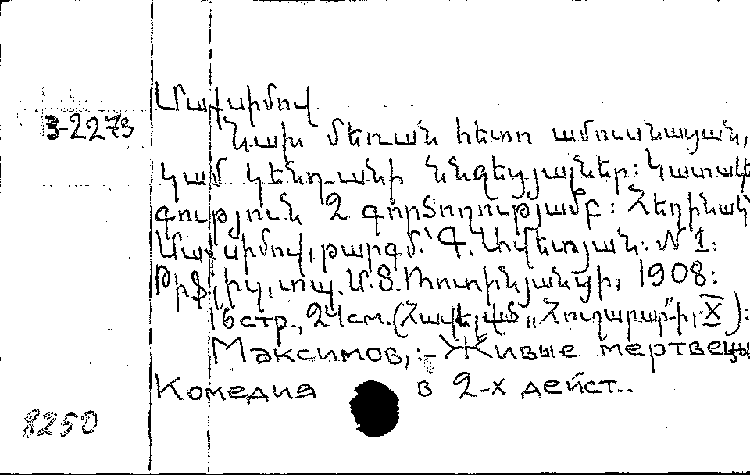 Մաքսիմով
3-2273
Նախ մեռան հետո ամուսնացան,
կամ կենդանի ննջեցյալներ: Կատակեր-
գություն 2 գործողությամբ: Հեղինակ՝
Մաքսիմով, թարգմ.՝ Գ. Ավետյան: № 1:
Թիֆլիս, տպ. Մ.Ց. Ռոտինյանցի, 1908:
16 стр., 21 см. (Հավելված „Հուշարար"ի, X):
Максимов, :- Живые мертвецы
Комедия в 2-х дейст..
8250